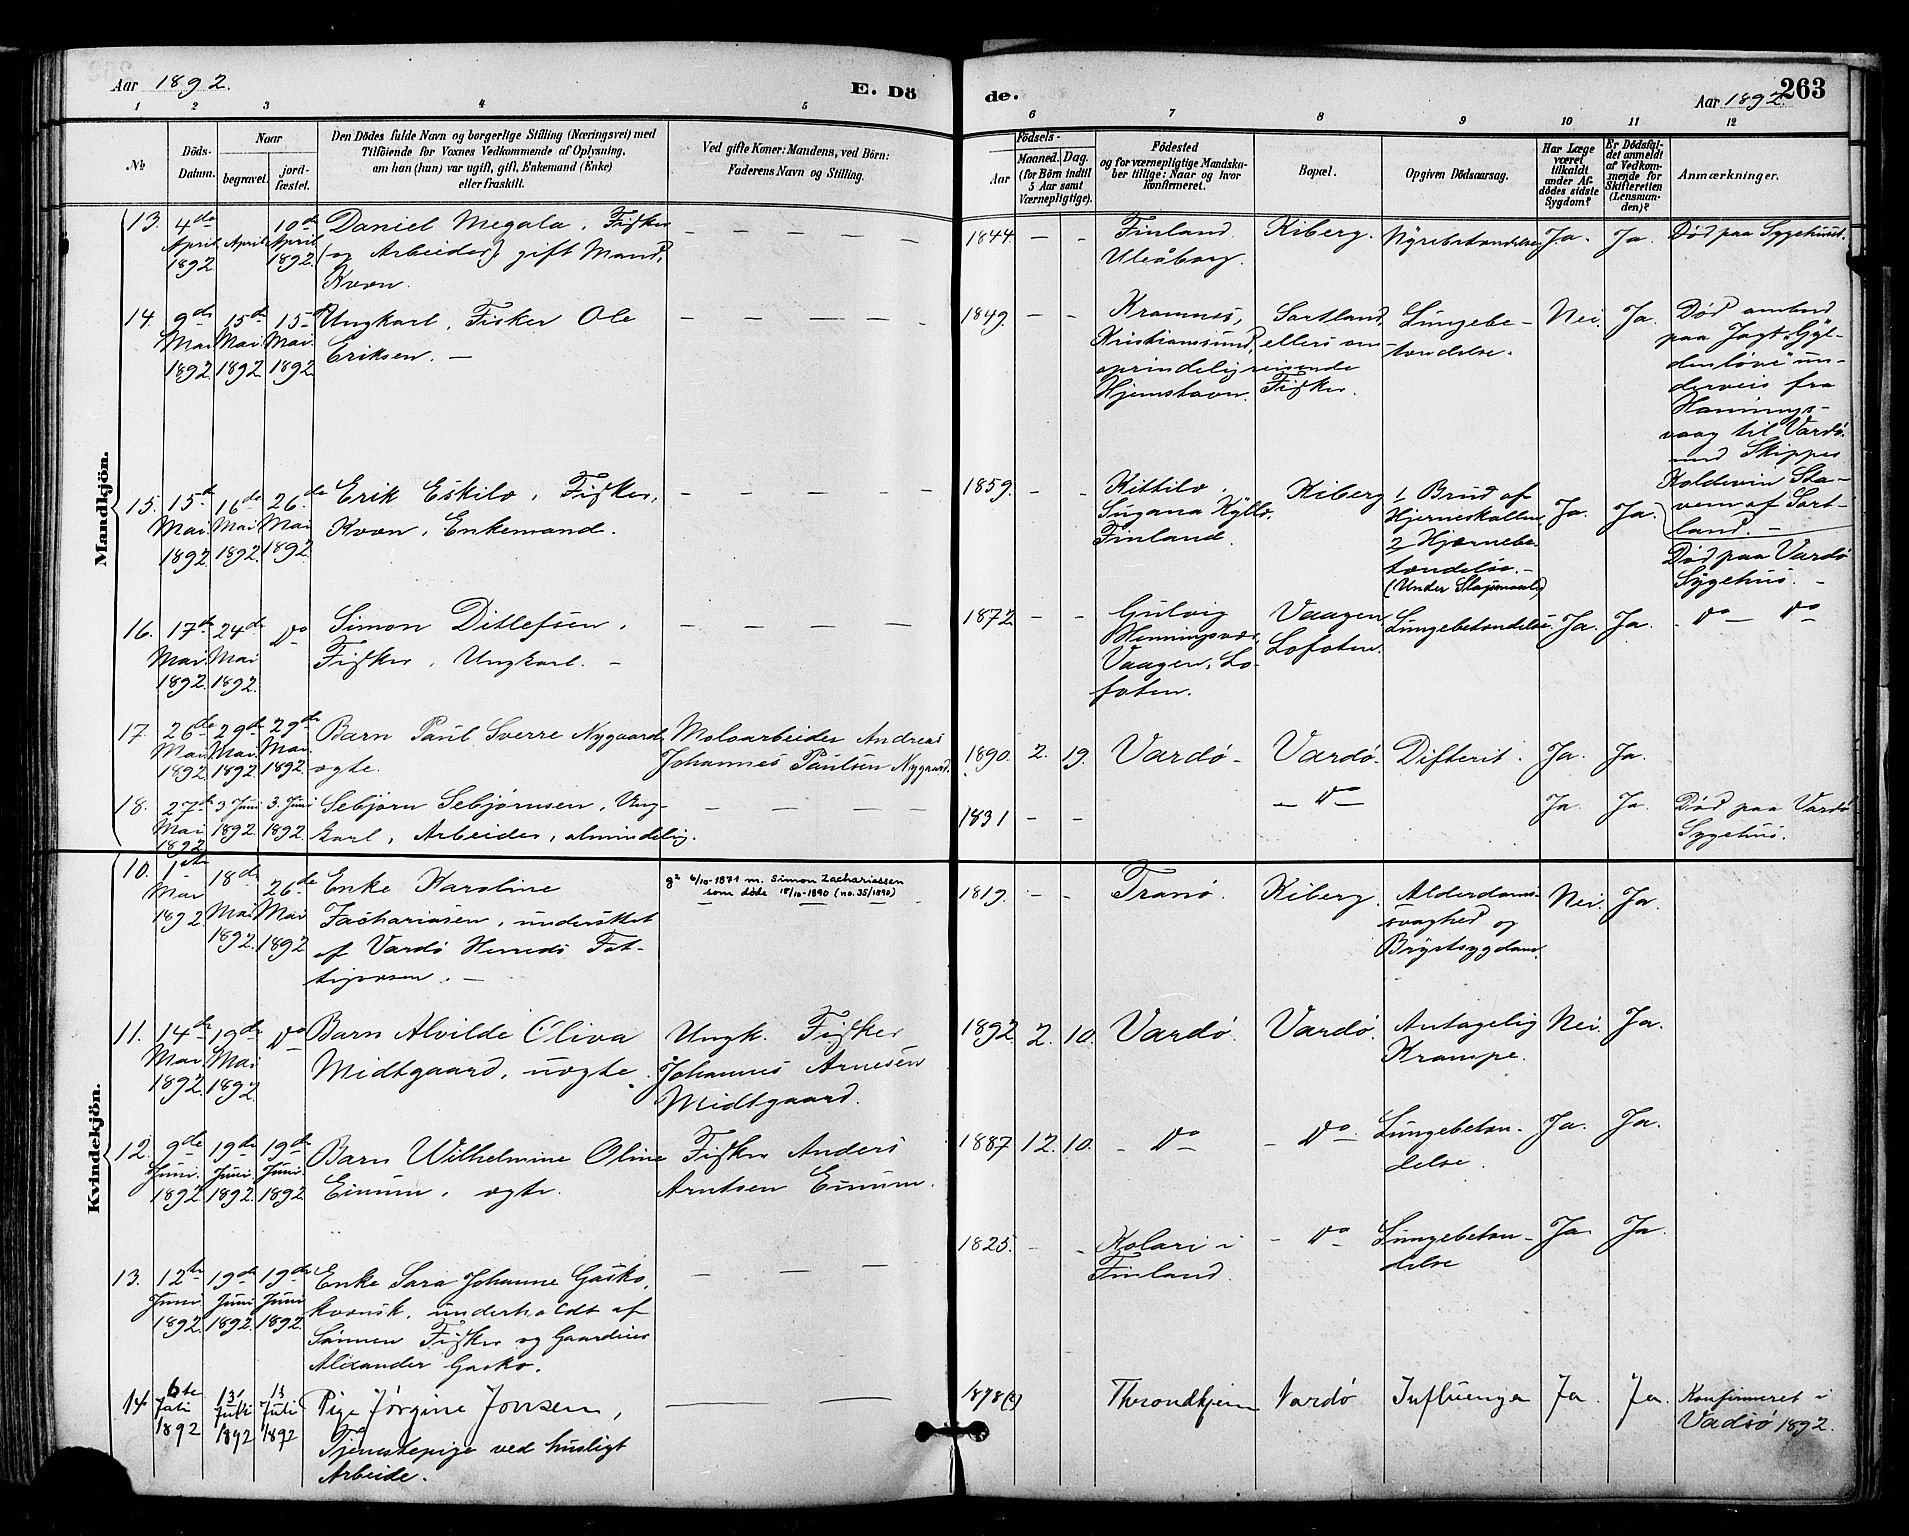 Aar 1892.
E. Dö
de.
Aar 1892.
263
1 2 3 4 5 6 7 8 9 10 11 12
No
Döds-
Datum.
Naar
begravet.
jord-
fæstet.
Den Dödes fulde Navn og borgerlige Stilling (Næringsvei) med
Tilföiende for Voxnes Vedkommende af Oplysning,
om han (hun) var ugift, gift, Enkemand (Enke)
eller fraskilt.
Ved gifte Koner: Mandens, ved Börn:
Faderens Navn og Stilling.
Födsels-
Aar
Maaned. Dag.
(for Börn indtil
5 Aar samt
Værnepligtige).
Födested
og for værnepligtige Mandska-
ber tillige: Naar og hvor
konfirmeret.
Bopæl.
Opgiven Dödsaarsag.
Har Læge
været
tilkaldt
under Af-
dödes sidste
Sygdom?
Er Dödsfal-
det anmeldt
af Vedkom-
mende for
Skifteretten
(Lensman-
den)?
Anmærkninger.
Mandkjön.
13. 4de April 1892 April 10de April 1892.
Daniel Megala, Fisker
(og Arbeider) gift Mand,
Kvæn.
1844. — —
Finland
Uleåborg.
Kiberg.
Nyrebetændelse
Ja. Ja.
Død paa Sygehuset.
14. 9de Mai 1892 15de Mai 1892 15de Mai 1892
Ungkarl, Fisker Ole
Eriksen. —
1849. — —
Kristiansund,
oprindelig
Hjemstavn.
Sortland,
ellers om-
reisende
Fisker.
Lungebe-
tændelse.
Nei. Ja.
Død ombord
paa Jagt "Gyl-
denløve" un-
derveis fra
Honnings-
vaag til Vardø
med Skipper
Koldevin Sta-
vem af Sort-
land. —
15. 15de Mai 1892 16de Mai 1892. 26de Mai 1892
Erik Eskilo, Fisker,
Kvæn, Enkemand.
1859. — —
Kittilo,
Finland.
Kiberg
1 Brud af
Hjerneskallen
2 Hjernebe-
tændelse. —
(Under Slagsmaal)
Ja. Ja.
Død paa Vardø
Sygehus. —
16. 17de Mai 1892 24de Mai 1892. Do
Simon Ditlefsen,
Fisker, Ungkarl. —
1872 — —
Gulvig
Henningsvær,
Vaagen, Lo-
foten.
Vaagen
Lofoten.
Lungebetændelse
Ja. Ja.
- Do — Do
17. 26de Mai 1892 29de Mai 1892 29de Mai 1892
Barn Paul Sverre Nygaard,
ægte.
Moloarbeider Andreas
Johannes Paulsen Nygaard.
1890. 2. 19.
Vardø -
Vardø.
Difterit.
Ja. Ja.
18. 27de Mai 1892 3 Juni 1892 3. Juni 1892.
Sebjørn Sebjørnsen, Ung-
karl, Arbeider, almindelig.
1831 — —
- Do —
Ja. Ja.
Død paa Vardø
Sygehus.
Kvindekjön.
10. 1ste Mai 1892 18de Mai 1892. 26de Mai 1892
Enke Karoline
Zachariasen, understøttet
af Vardø Herreds Fat-
tigvæsen. —
g² 6/10-1871 m. Simon Zachariassen
som døde 18/10-1890 (no. 35/1890)
1819. - -
Tranø.
Kiberg.
Alderdoms-
svaghed og
Brystsygdom.
Nei. Ja.
11. 14de Mai 1892 19de Mai 1892 Do
Barn Alvilde Oliva
Midtgaard, uægte.
Ungk. Fisker
Johannes Arnesen
Midtgaard.
1892 2. 10.
Vardø.
Vardø.
Antagelig
Krampe.
Nei Ja.
12. 9de Juni 1892 19de Juni 1892. 19de Juni 1892
Barn Wilhelmine Oline
Einum, ægte.
Fisker Anders
Arntsen Einum.
1887 12. 10.
- Do
- Do
Lungebetæn-
delse.
Ja. Ja.
13. 12te Juni 1892 19de Juni 1892. 19de Juni 1892.
Enke Sara Johanne Gasko,
kvænsk, underholdt af
Sønnen Fisker og Gaardeier
Alexander Gasko.
1825. - -
Kolari i
Finland.
- Do
Lungebetæn-
delse
Ja Ja.
14 6te Juli 1892 13 Juli 1892 13 Juli 1892
Pige Jørgine Jonsen,
Tjenestepige ved husligt
Arbeide.
1878(?)
Throndhjem
Vardø
Influenza
Ja. Ja.
Konfirmeret i
Vadsø 1892.